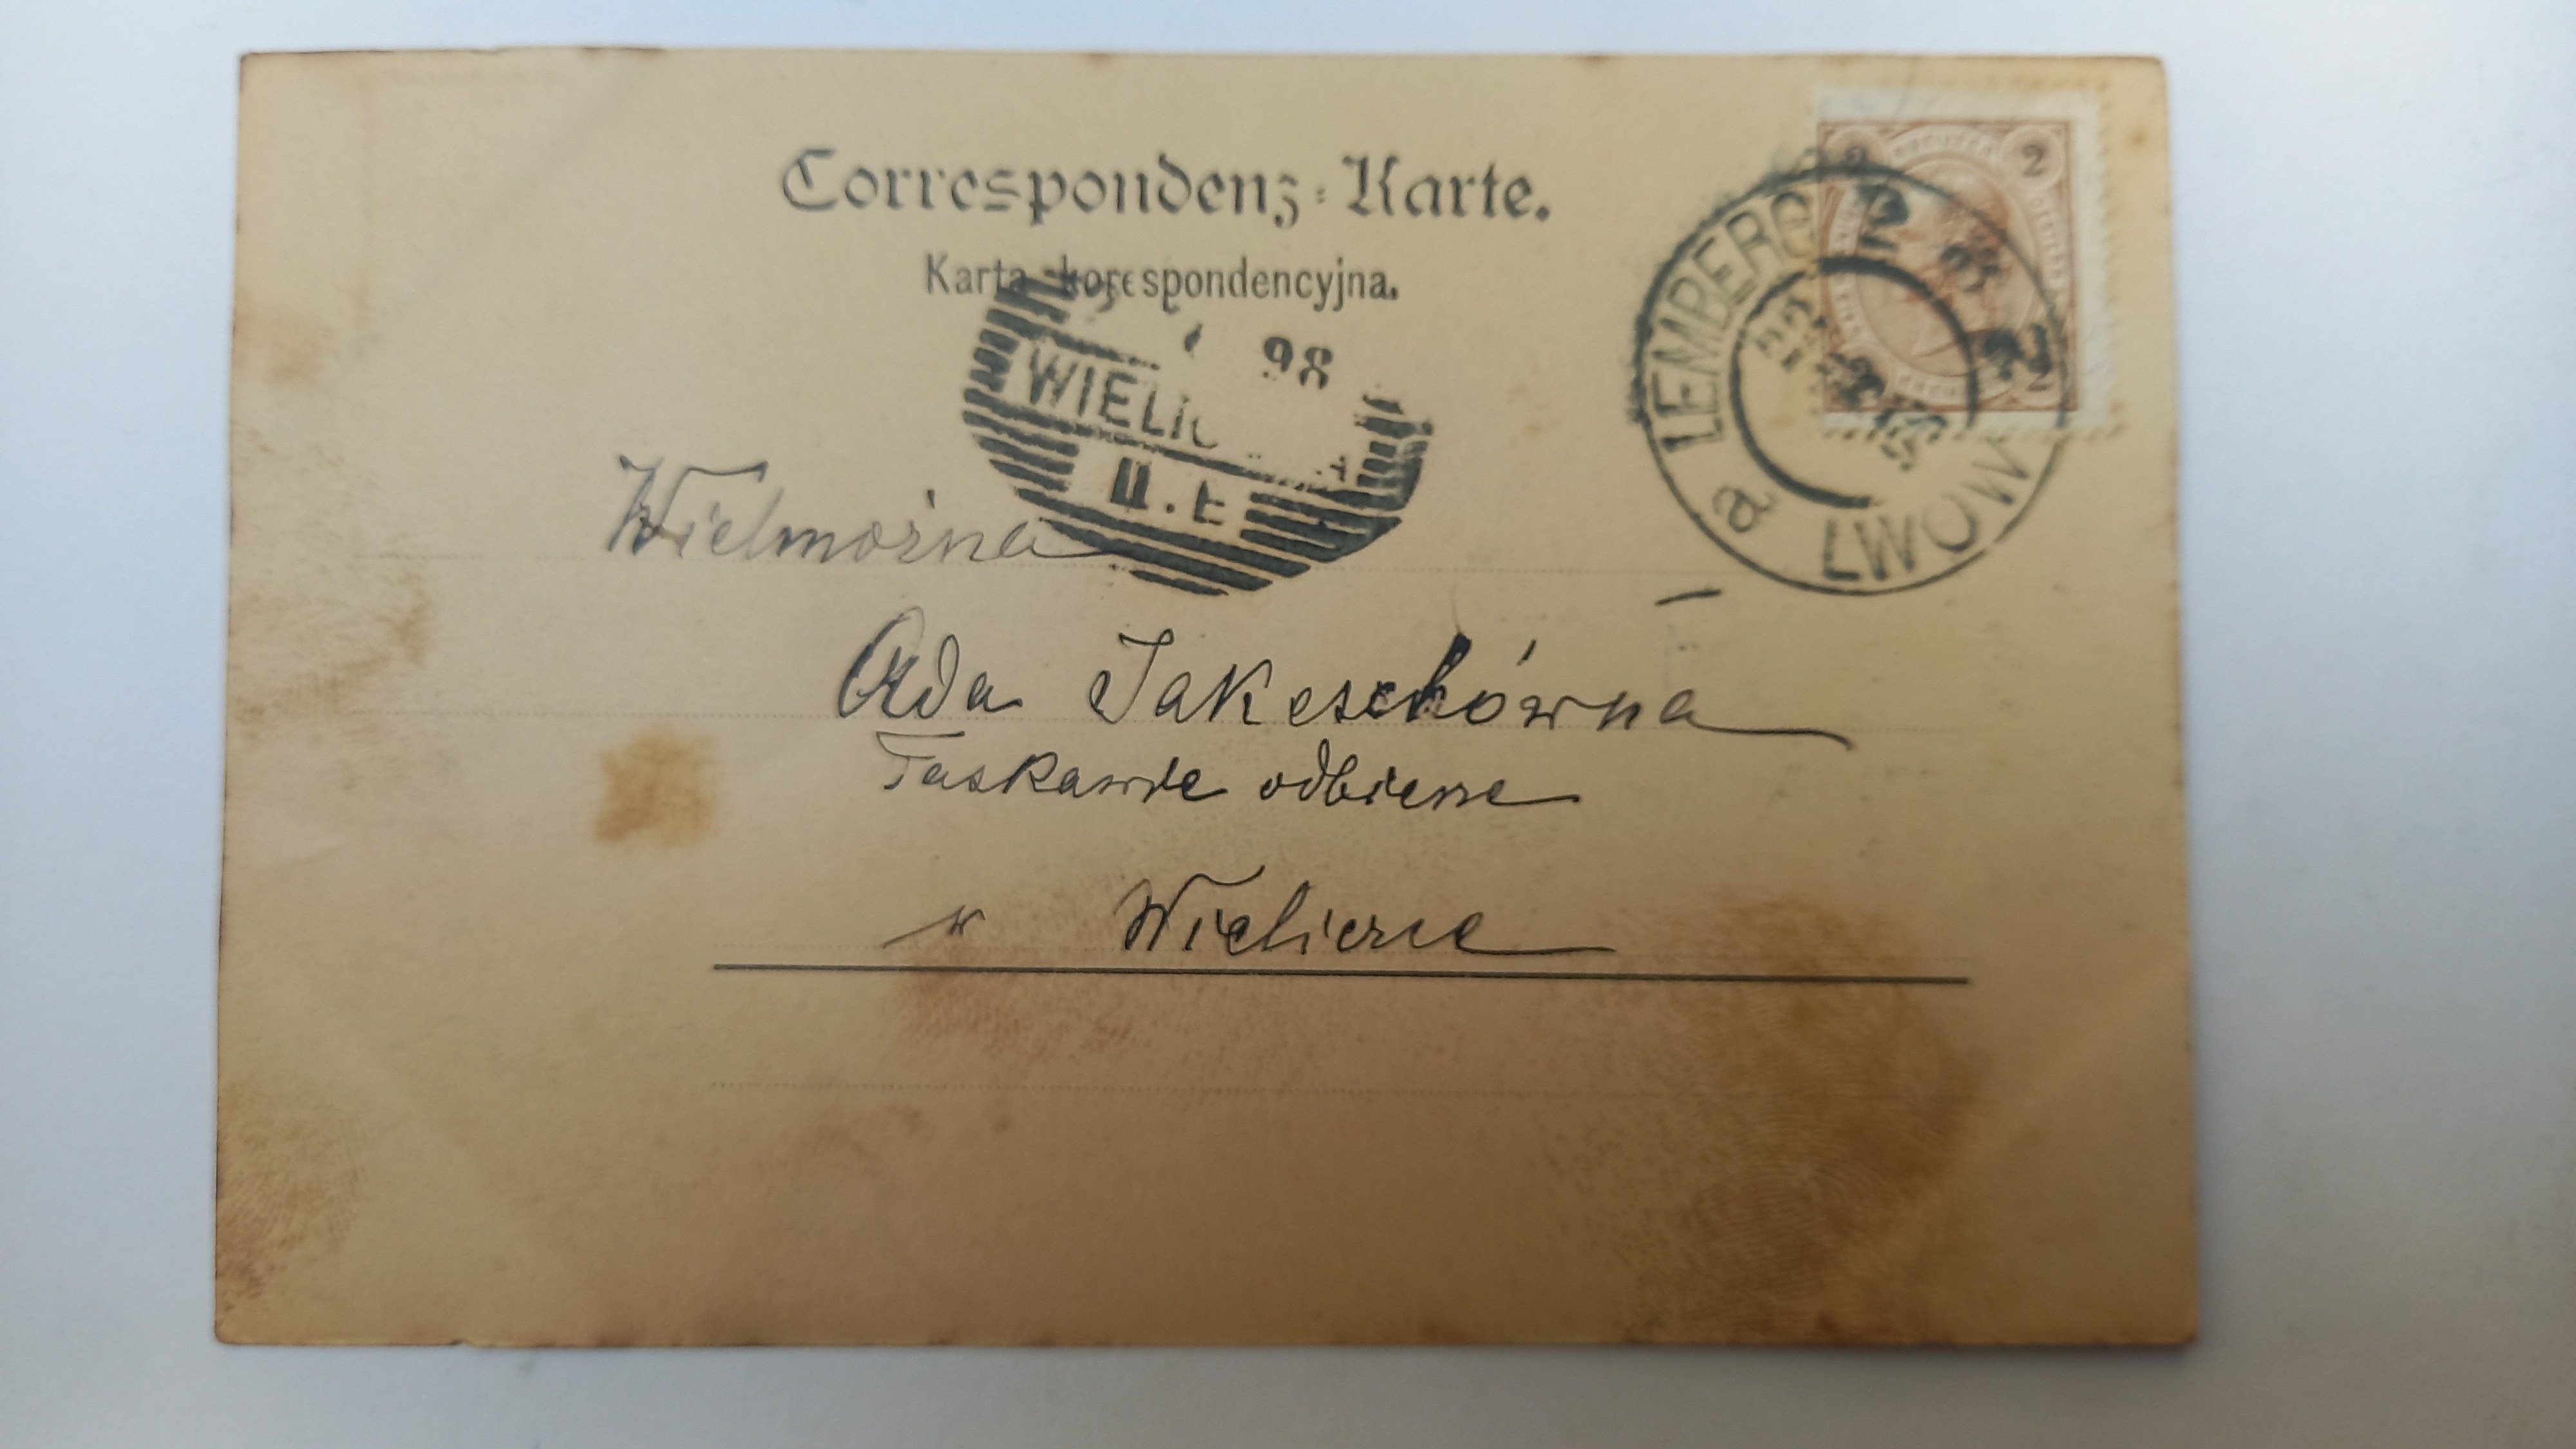 Correspondenz-Karte.
Karta korespondencyjna.
98
WIELIC
II. E
LEMBERG 2
a LWOW
2 2
Wielmożna
Ada Jakeschówna
Łaskawie odbierze
w Wieliczce